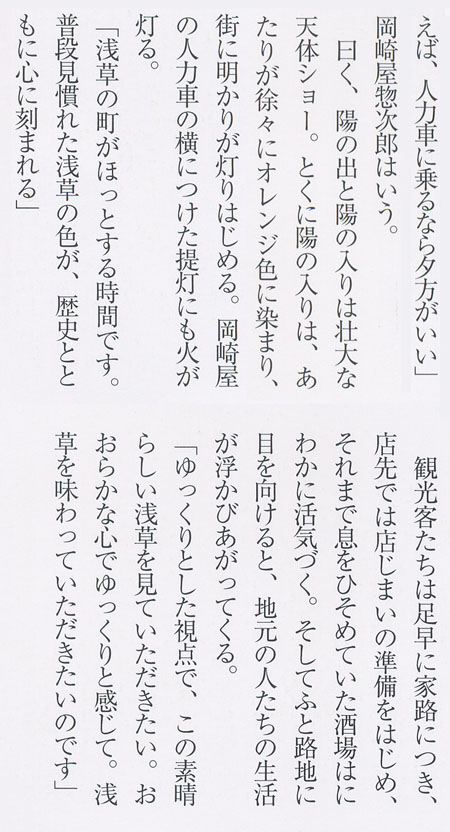 えば、人力車に乗るなら夕方がいい」
岡崎屋惣次郎はいう。
　曰く、陽の出と陽の入りは壮大な
天体ショー。とくに陽の入りは、あ
たりが徐々にオレンジ色に染まり、
街に明かりが灯りはじめる。岡崎屋
の人力車の横につけた提灯にも火が
灯る。
「浅草の町がほっとする時間です。
普段見慣れた浅草の色が、歴史とと
もに心に刻まれる」
　観光客たちは足早に家路につき、
店先では店じまいの準備をはじめ、
それまで息をひそめていた酒場はに
わかに活気づく。そしてふと路地に
目を向けると、地元の人たちの生活
が浮かびあがってくる。
「ゆっくりとした視点で、この素晴
らしい浅草を見ていただきたい。お
おらかな心でゆっくりと感じて。浅
草を味わっていただきたいのです」